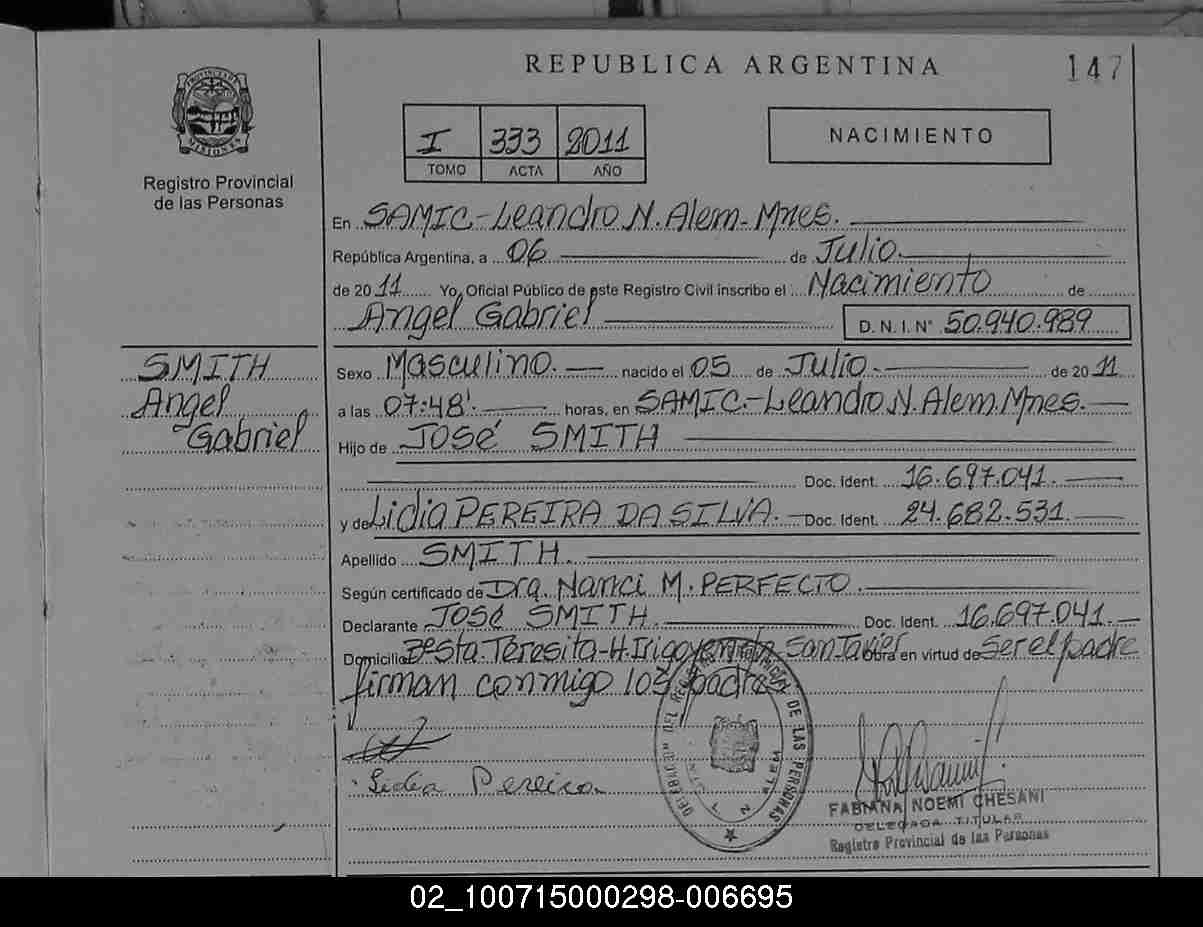 REPUBLICA ARGENTINA
147
PROVINCIA DE MISIONES
Registro Provincial
de las Personas
I 333 2011
TOMO ACTA AÑO
NACIMIENTO
En SAMIC.-Leandro N. Alem-Mnes.
República Argentina, a 06 de Julio.
de 2011 Yo, Oficial Público de este Registro Civil inscribo el Nacimiento de
Angel Gabriel D. N. I. N° 50.940.989
SMITH
Angel
Gabriel
Sexo Masculino. nacido el 05 de Julio. de 2011
a las 07:48'. horas, en SAMIC.-Leandro N. Alem. Mnes.
Hijo de José SMITH
Doc. Ident. 16.697.041.
y de Lidia PEREIRA DA SILVA. Doc. Ident. 24.682.531.
Apellido SMITH.
Según certificado de Dra. Nanci M. PERFECTO.
Declarante José SMITH. Doc. Ident. 16.697.041.
Domicilio Bº Sta. Teresita-H. Irigoyen San Javier Obra en virtud de Ser el padre
firman conmigo los padres
Lidia Pereira
DEL REGISTRO PROVINCIAL DE LAS PERSONAS
FABIANA NOEMI CHESANI
DELEGADA TITULAR
Registro Provincial de las Personas
02_100715000298-006695